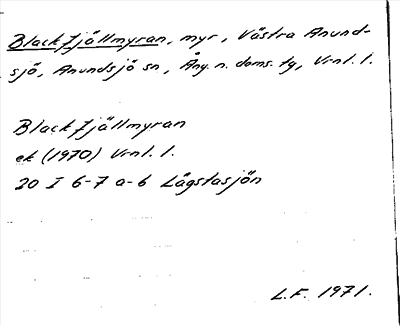 Blackfjällmyran, myr, Västra Anund-
sjö, Anundsjö sn, Ång. n. doms. tg, Vrnl. l.
Blackfjällmyran
ek (1970) Vrnl. l.
20 I 6-7 a-b Lågstasjön
L.F. 1971.